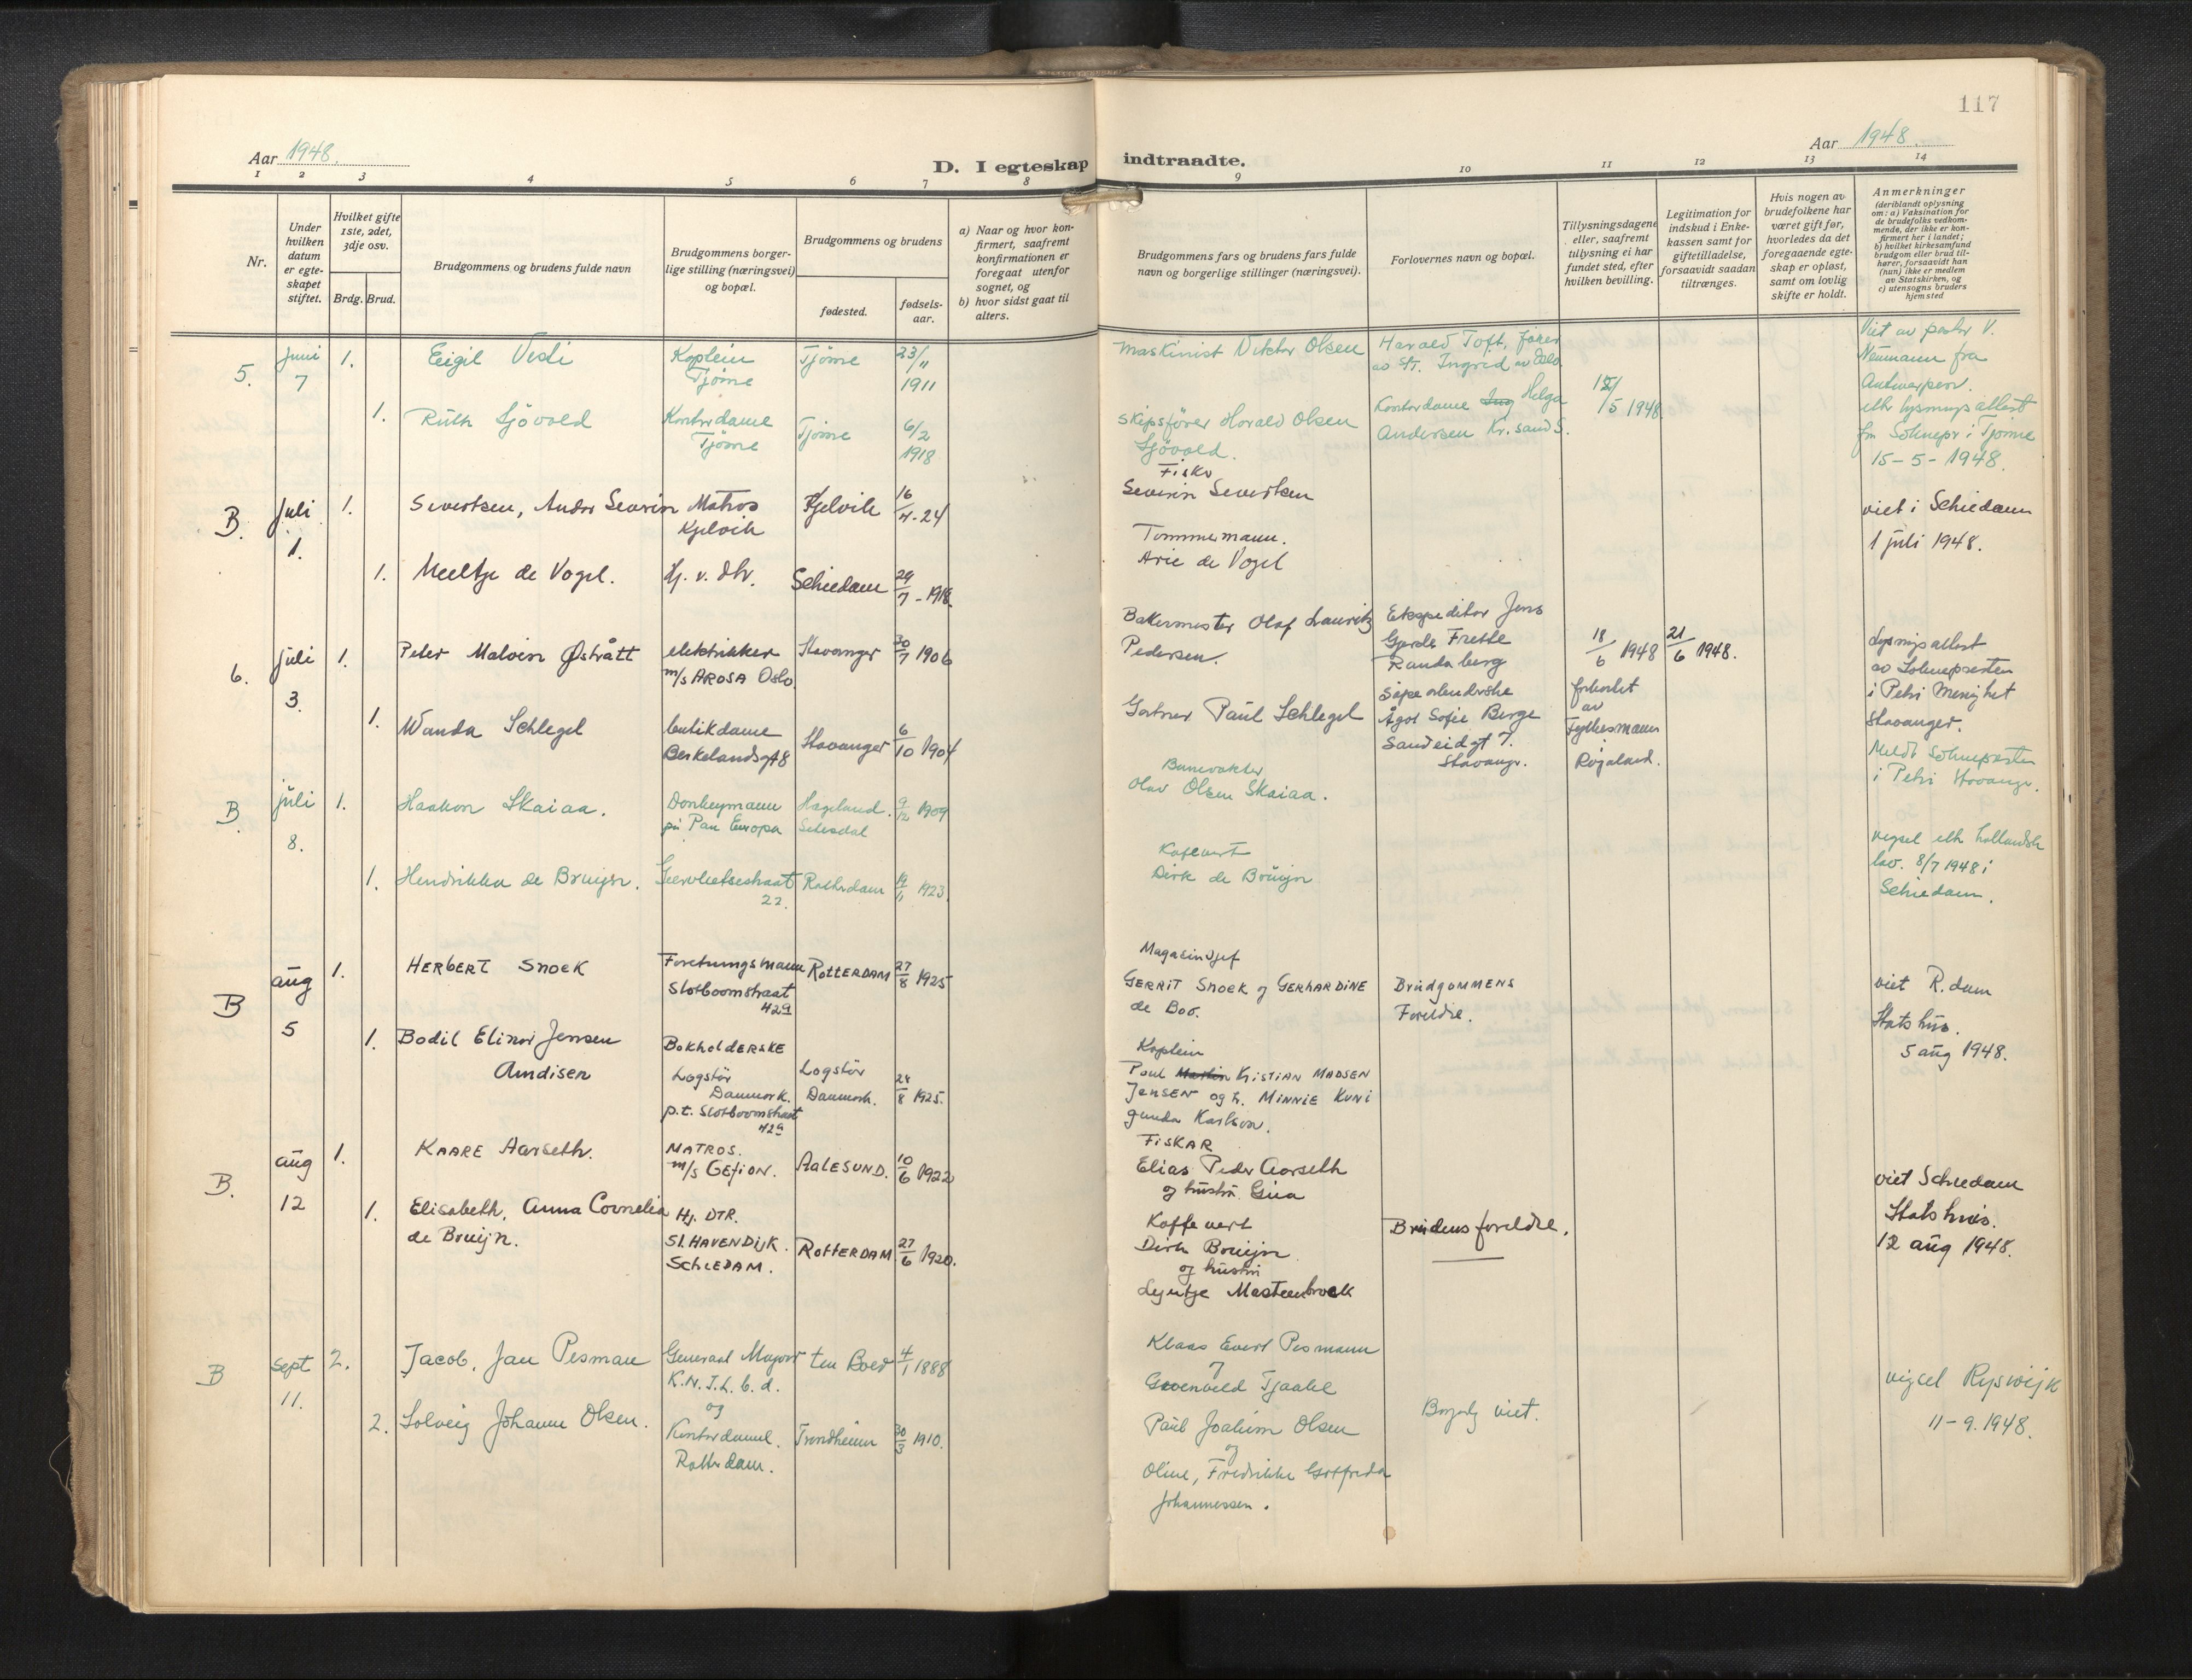 117
Aar 1948.
D. I egteskap indtraadte.
Aar 1948.
1 2 3 4 5 6 7 8 9 10 11 12 13 14
Nr.
Under
hvilken
datum
er egte-
skapet
stiftet.
Hvilket gifte
1ste, 2det,
3dje osv.
Brdg. Brud.
Brudgommens og brudens fulde navn
Brudgommens borger-
lige stilling (næringsvei)
og bopæl.
Brudgommens og brudens
fødested.
fødsels-
aar.
a) Naar og hvor kon-
firmert, saafremt
konfirmationen er
foregaat utenfor
sognet, og
b) hvor sidst gaat til
alters.
Brudgommens og brudens fars fulde
navn og borgerlige stillinger (næringsvei).
Forlovernes navn og bopæl.
Tillysningsdagene
eller, saafremt
tillysning ei har
fundet sted, efter
hvilken bevilling.
Legitimation for
indskud i Enke-
kassen samt for
giftetilladelse,
forsaavidt saadan
tiltrænges.
Hvis nogen av
brudefolkene har
været gift før,
hvorledes da det
foregaaende egte-
skap er opløst,
samt om lovlig
skifte er holdt.
Anmerkninger
(deriblandt oplysning
om: a) Vaksination for
de brudefolks vedkom-
mende, der ikke er kon-
firmert her i landet;
b) hvilket kirkesamfund
brudgom eller brud til-
hører, forsaavidt han
(hun) ikke er medlem
av Statskirken, og
c) utensogns bruders
hjemsted
5.
juni
7
1.
Eigil Vedi
Kaptein
Tjöme
Tjöme
23/11
1911
Maskinist Viktor Olsen
Harald Toft, fører
av S/T. Ingrid av Oslo
1.
Ruth Sjövold
Kontordame
Tjöme
Tjöme
6/2
1918
Skipsfører Harald Olsen
Sjövold.
Kontordame Helga
Andersen Kr. sand S.
15/5 1948
Viet av pastor V.
Neumann fra
Antwerpen.
etter lysningsattest
fra Soknepr i Tjöme
15-5-1948.
B.
Juli
1.
1.
Sivertsen, Andor Severin
Matros
Kjelvik
Kjelvik
16/4-24
Fisker
Severin Severtsen
1.
Meeltje de Vogel.
Hj. v. dtr.
Schiedam
29/7-1918.
Tømmermann.
Arie de Vogel
viet i Schiedam
1 juli 1948.
6.
juli
3.
1.
Peter Malvin Østrått
elektrikker
m/s AROSA Oslo.
Stavanger
30/7 1906
Bakermester Olaf Lauritz
Pedersen.
Ekspeditør Jens
Gjerde Frette
Randaberg
1.
Wanda Schlegel
butikdame
Berkelandsgt 8
Stavanger
6/10 1904
Gartner Paul Schlegel
Ågot Sofie Berge
Sandeidgt 7.
Stavangr.
18/6 1948
forkortet
av
Fylkesmann
Rogaland.
21/6 1948.
Lysningsattest
av Soknepresten
i Petri Menighet
Stavanger.
Meldt Soknepresten
i Petri Stavangr.
B
juli
8.
1.
Haakon Skaiaa.
Donkeymann
på Pan Europa
Hageland.
Setesdal
9/12 1909
Banevokter
Olav Olsen Skaiaa.
1.
Hendrikka de Bruijn.
Geervlietsestraat
22.
Rotterdam
1923.
Kafevert
Dirk de Bruijn
vigsel etter hollandsk
lov. 8/7 1948 i
Schiedam.
B
aug
5
1.
HERBERT SNOEK
Forretningsmann
Slotboomstraat
42a
ROTTERDAM
27/8 1925
Magasinsjef
GERRIT SNOEK og GERHARDINE
de Boo.
BrudgOMMENS
Foreldre.
1.
Bodil Elinor Jensen
Amdisen
BOKHOLDERSKE
Logstör
Danmark.
p.t. Slotboomstraat
42a
Logstör
Danmark.
24/8 1925.
Kaptein
Paul KRISTIAN MADSEN
JENSEN og h. MINNIE KUNI
gunda Karlson.
viet R.dam
Stats hus.
5 aug 1948.
B.
aug
12
1.
KAARE Aarseth.
MATROS.
m/s GEFION.
AALESUND.
10/6 1922
FISKAR
Elias Peder Aarseth
og hustru. Gina
1.
Elisabeth, Anna Cornelia
de Bruijn.
Hj. DTR.
Sl. HAVENDIJK.
SCHIEDAM.
ROTTERDAM
27/6 1920.
Kaffevert
Dirk Bruijn
og hustru
Leyntje Mastenbroek
Brudens foreldre.
viet Schiedam
Stats hus.
12 aug 1948.
B
Sept
11.
2.
Jacob, Jan Pesman
Generaal Majoor
K.N.I.L. b.d.
og
ten Boer
4/1 1888
Klaas Evert Pesmann
Groenveld Tjaakel
2.
Solveig Johanne Olsen.
Kontordame.
Rotterdam.
Trondheim
30/3 1910.
Paul Joakim Olsen
og
Oline, Fredrikke Gotfreda
Johannessen.
Borgerlig viet.
vigsel Ryswijk
11-9.1948.